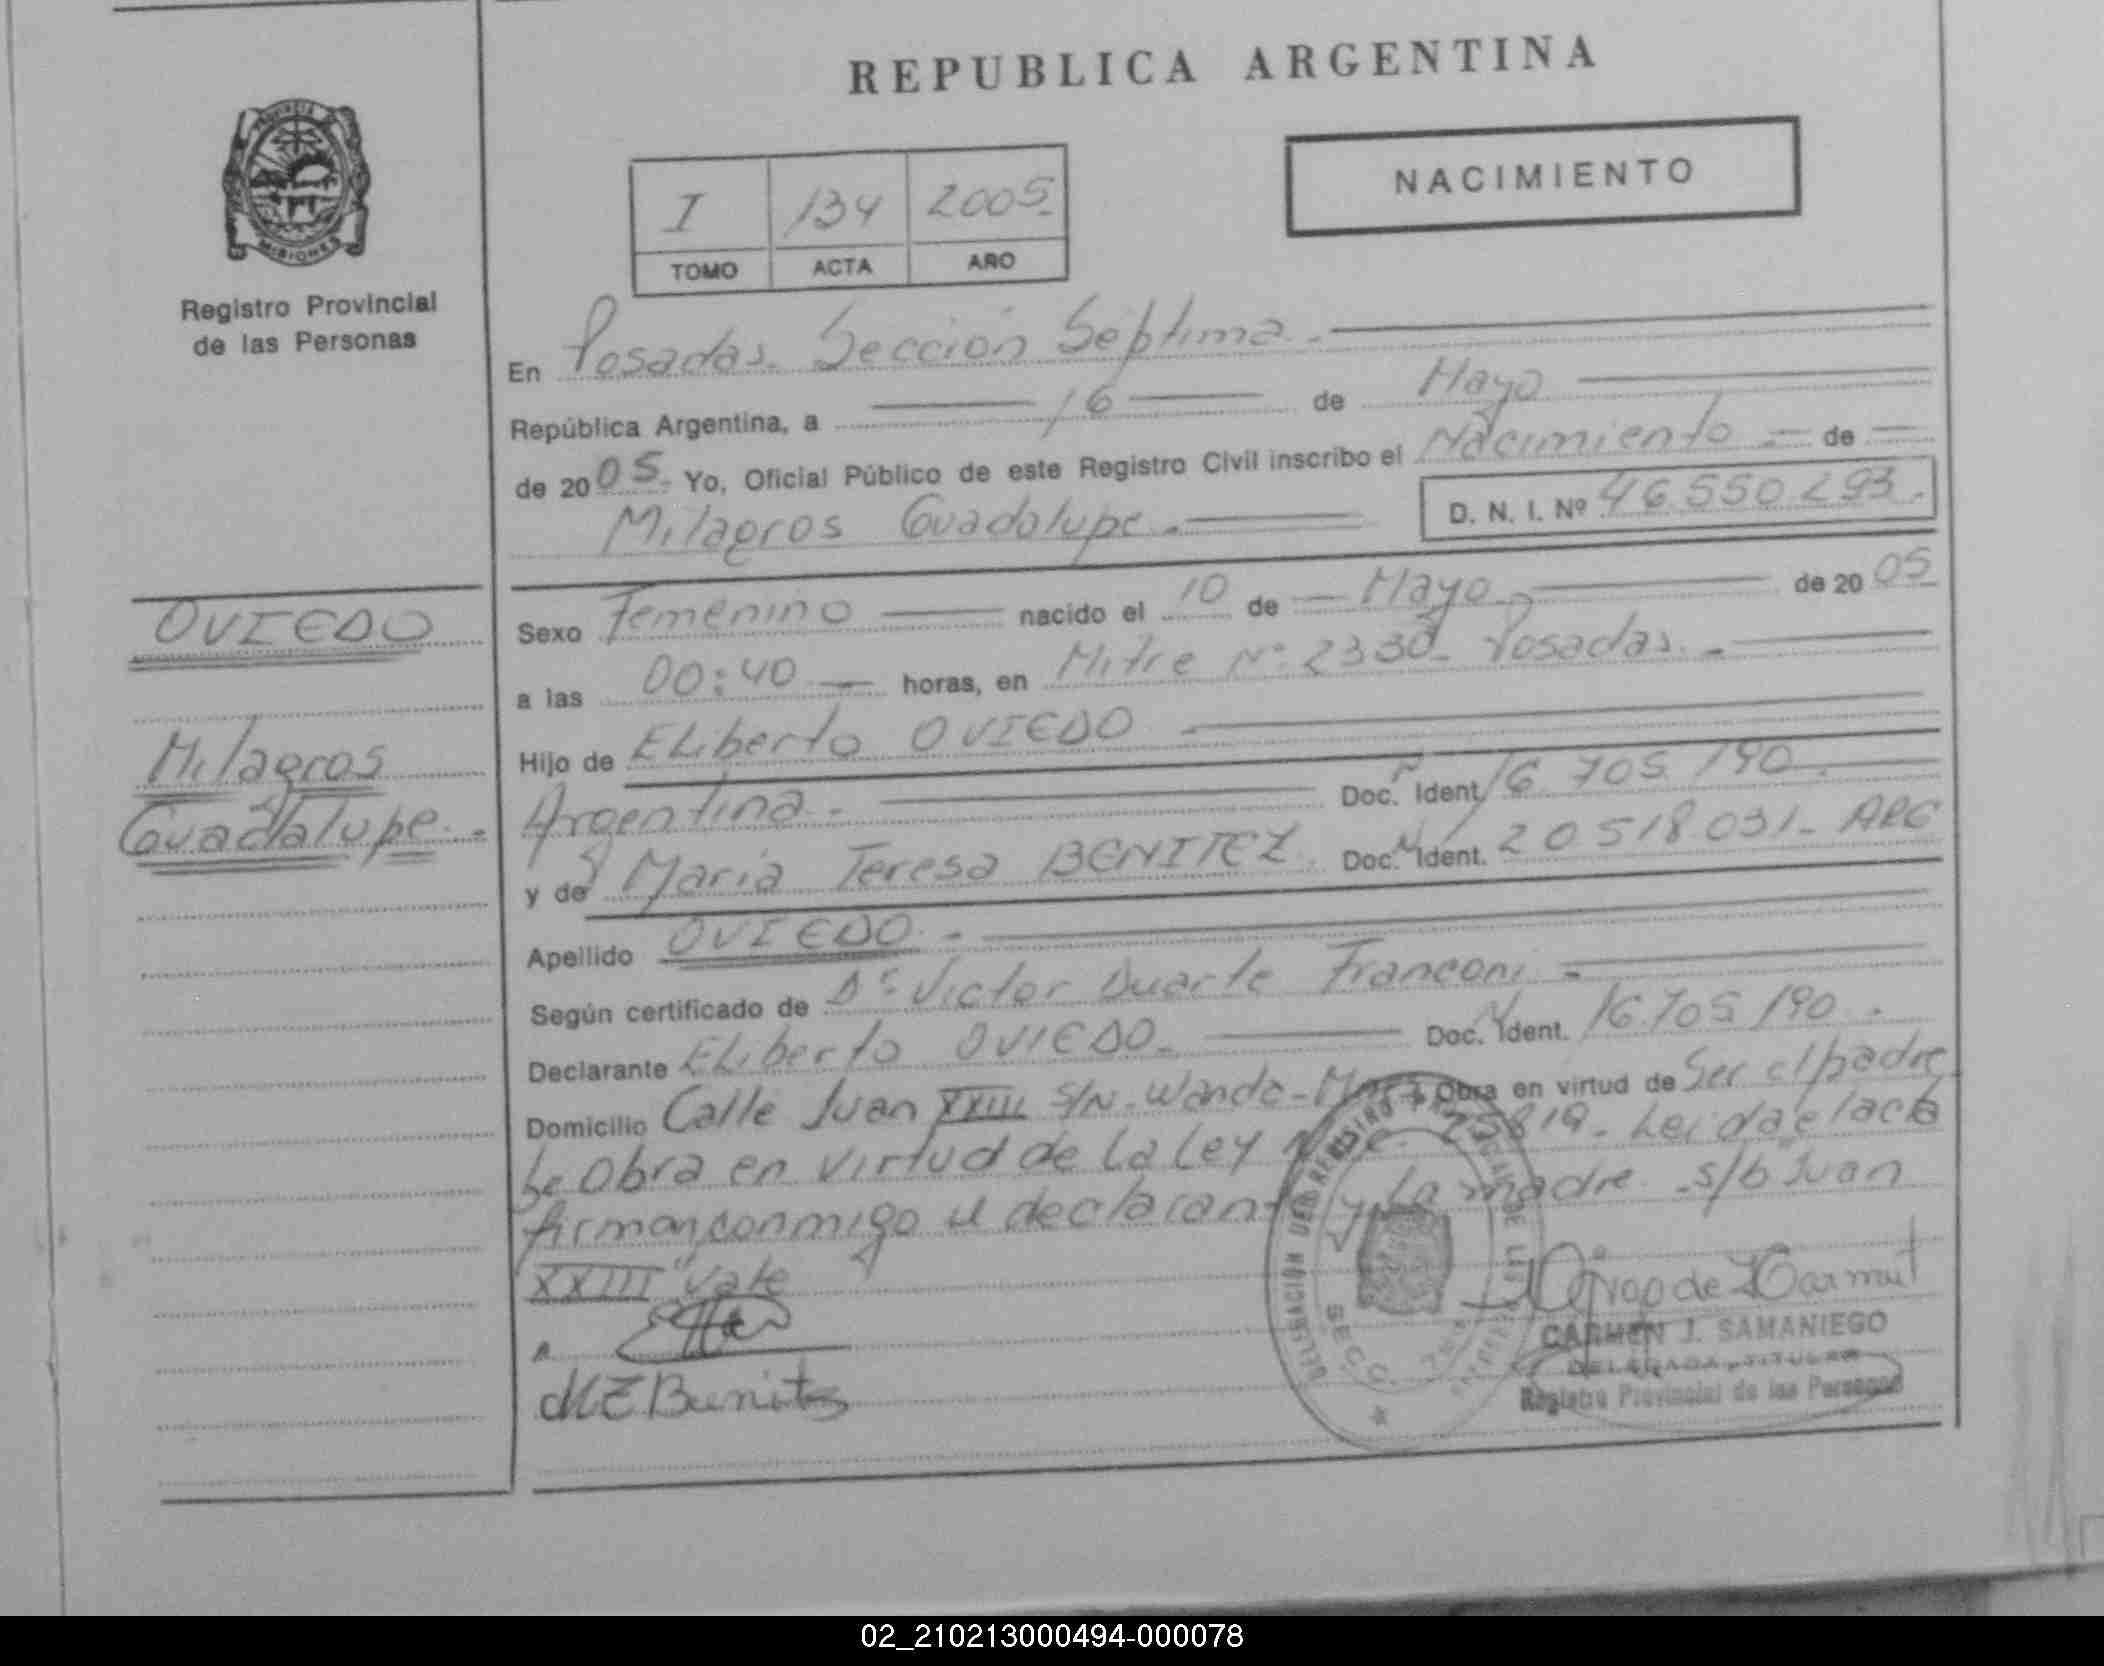 REPUBLICA ARGENTINA
PROVINCIA DE
MISIONES
Registro Provincial
de las Personas
NACIMIENTO
I 134 2005
TOMO ACTA AÑO
En Posadas. Sección Séptima.
República Argentina, a 16 de Mayo
de 2005. Yo, Oficial Público de este Registro Civil inscribo el Nacimiento de
Milagros Guadalupe. D. N. I. Nº 46.550.293.
OVIEDO
Milagros
Guadalupe.
Sexo Femenino nacido el 10 de Mayo de 2005
a las 00:40 horas, en Mitre Nº 2330 Posadas.
Hijo de Eliberto OVIEDO
Argentina. Doc. Ident. 16.705.190.
y de María Teresa BENITEZ Doc. Ident. 20.518.031- ARG
Apellido OVIEDO.
Según certificado de Dr Victor Duarte Franconi
Declarante Eliberto OVIEDO. Doc. Ident. 16.705.190.
Domicilio Calle Juan XXIII S/N. Wanda- Obra en virtud de Ser el padre
Se Obra en virtud de La Ley 23819. Leida el acta
firman conmigo el declarante y La madre. s/b "Juan
XXIII" Vale
MTBenitez
CARMEN J. SAMANIEGO
DELEGADA TITULAR
Registro Provincial de las Personas
02_210213000494-000078